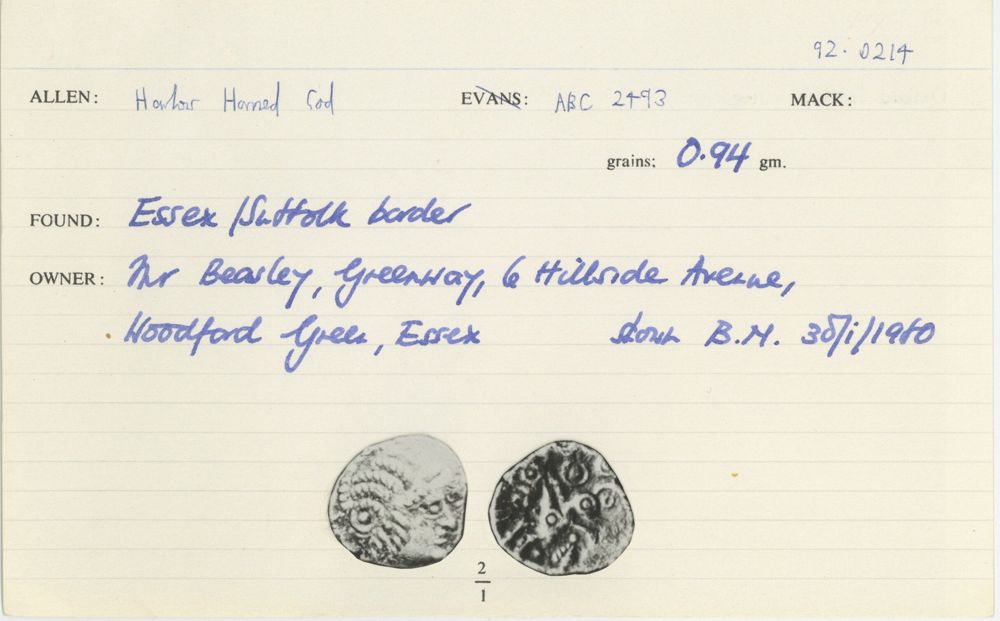 92. 0214
ALLEN: Harlow Horned God EVANS: ABC 2493 MACK:
grains; 0.94 gm.
FOUND: Essex/Suffolk border
OWNER: Mr Beasley, Greenway, 6 Hillside Avenue,
Woodford Green, Essex shown B.M. /i/1980
2
1